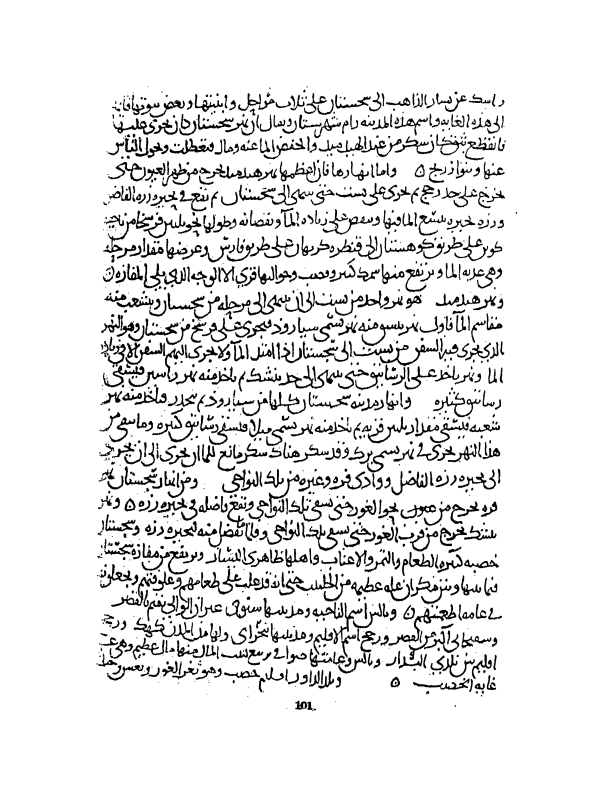 راسك عن يسار الذاهب الى سجستان على ثلاث مراحل وابنيتها وبعض بيوتها قائمة
الى هذه الغاية واسم هذه المدينة رام شهرستان ويقال ان نهر سجستان كان يجرى عليها
فانقطع بثق كان سكر من هيلميد وانخفض الماء عنه ومال فتعطلت وتحول الناس
عنها وبنوا زرنج ۵ واما انهارها فان اعظمها نهر هيدميد يخرج من ظهر الغور حتى
يخرج على حد رخج ثم يجرى على بست حتى ينتهى الى سجستان ثم يقع فى بحيرة زره الفاضل
وزره بحيرة يتسع الما فيها وينقص على زيادة المآ ونقصانه وطولها نحو ثلثين فرسخا من ناحية
كوين على طريق كوهستان الى قنطرة كرمان على طريق فارس وعرضها مقدار مرحلة
وهى عذبة الما ويرتفع منها سمك كثير وقصب وحواليها قرى الا الوجه الذى يلى المفازة ۵
ونهر هيدميد هو نهر واحد من بست الى ان ينتهى الى مرحلة من سجستان ويتشعب منه
مقاسم المآ فاول نهر ينشق منه نهر يسمى سيارود فيجرى على فرسخ من سجستان وهو النهر
الذى يجرى فيه السفن من بست الى سجستان اذا امتد المآ ولا يجرى اليهم السفن الا فى زيادة
الما ونهر ياخذ على الرساتيق حتى ينتهى الى حد نيشك ثم ياخذ منه نهر فيسقى
رساتيق كثيرة وانهار مدينة سجستان كلها من سيارود ثم ينحدر فياخذ منه نهر
شعبه فيسقى مقدار ثلثين قرية ثم ياخذ منه نهر يسمى ميلا فيسقى رساتيق كثيرة وما بقى من
هذا النهر يجرى فى نهر يسمى بزك وقد سكر هناك سكر مانع للما ان يجرى الى ان يجرى
الى بحيرة زره الفاضل ووادى فره وغيره من تلك النواحى ومن انهار سجستان نهر
فره يخرج من عيون نحو الغور حتى يسقى تلك النواحى ويقع فاضله فى بحيرة زره ۵ ونهر
نيشك يخرج من قرب الغور حتى يسقى تلك النواحى وقلما يفضل منه لبحيرة زره وسجستان
خصبة كثيرة الطعام والتمر والاعناب واهلها ظاهرى اليسار ويرتفع من مفازة سجستان
فيما بينها وبين مكران غلة عظيمة من الحلتيت حتى انه قد غلب على طعامهم ويجعلونه
فى عامة اطعمتهم ۵ وبالس اسم الناحية ومدينتها سيوى غير ان الوالى يقيم بالقصر
وسفنجاى اكبر من القصر ورخج اسم الاقليم ومدينتها بنجواى ولها من المدن كهك ورخج
اقليم بين بلدى الداور وبالس وعامتها صوافى يرتفع لبيت المال منها مال عظيم وهى فى
غاية الخصب ۵ وبلد الداور اقليم خصب وهو ثغر الغور
101.